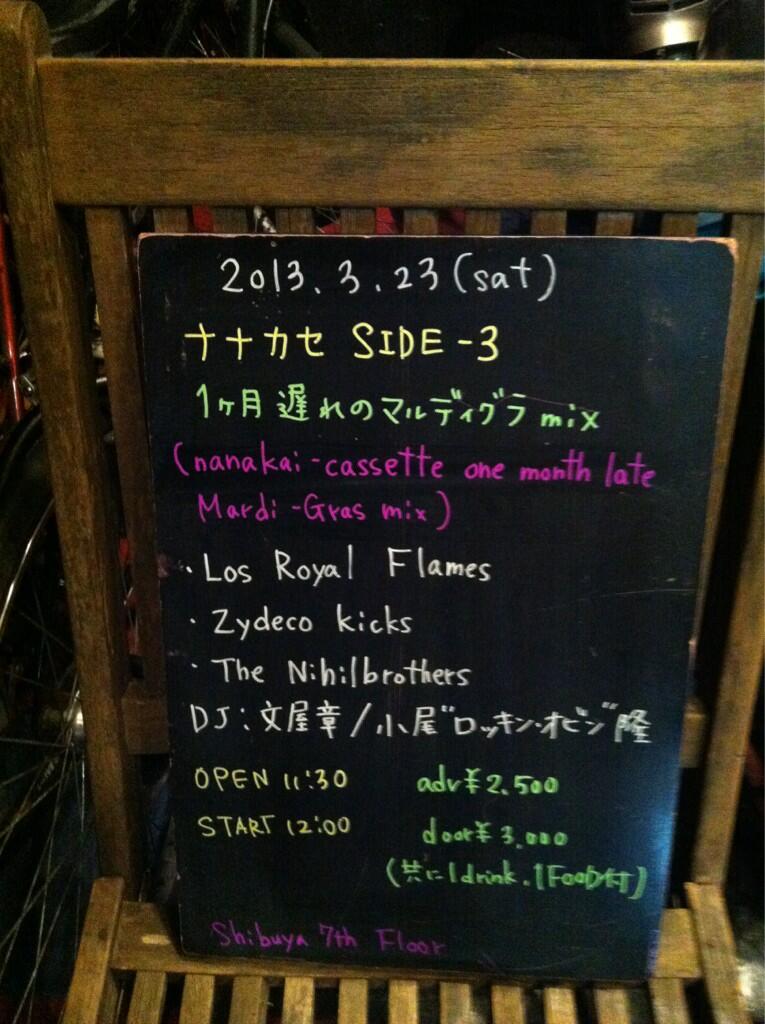 2013.3.23(sat)
ナナカセ SIDE-3
1ヶ月遅れのマルディグラ mix
(nanakai-cassette one month late
Mardi-Gras mix)
・Los Royal Flames
・Zydeco kicks
・The Nihilbrothers
DJ:文屋章/小尾"ロッキン・オビン"隆
OPEN 11:30 adv¥2.500
START 12:00 door¥3,000
(共に1drink.1Food付)
Shibuya 7th Floor